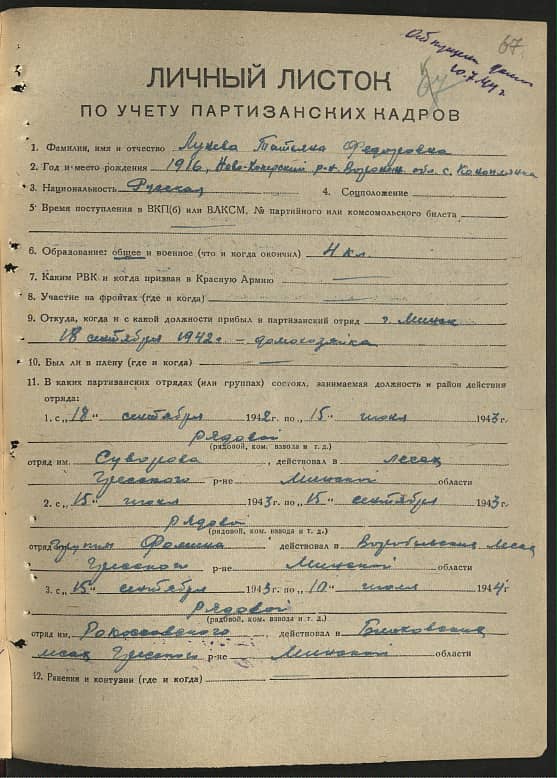 67
10.7.44 г
67
ЛИЧНЫЙ ЛИСТОК
ПО УЧЕТУ ПАРТИЗАНСКИХ КАДРОВ
1. Фамилия, имя и отчество Лунева Татьяна Федоровна
2. Год и место рождения 1916, Ново-Хоперский р-н Воронеж. обл. с.
3. Национальность Русская 4. Соцположение
5. Время поступления в ВКП(б) или ВЛКСМ, № партийного или комсомольского билета
6. Образование: общее и военное (что и когда окончил) 4 кл.
7. Каким РВК и когда призван в Красную Армию
8. Участие на фронтах (где и когда)
9. Откуда, когда и с какой должности прибыл в партизанский отряд г. Минск
18 сентября 1942 г. – домохозяйка
10. Был ли в плену (где и когда)
11. В каких партизанских отрядах (или группах) состоял, занимаемая должность и район действия
отряда:
1. с „18“ сентября 1942 г. по „15“ июня 1943 г.
рядовой
(рядовой, ком. взвода и т. д.)
отряд им. Суворова, действовал в лесах
Гресского р-не Минской области
2. с „15“ июня 1943 г. по „15“ сентября 1943 г.
рядовой
(рядовой, ком. взвода и т. д.)
отряд группы Фомина действовал в лесах
Гресского р-не Минской области
3. с „15“ сентября 1943 г. по „10“ июля 1944 г
Рядовой
(рядовой, ком. взвода и т. д.)
отряд им. Рокоссовского, действовал в
лесах Гресского р-не Минской области
12. Ранения и контузии (где и когда)